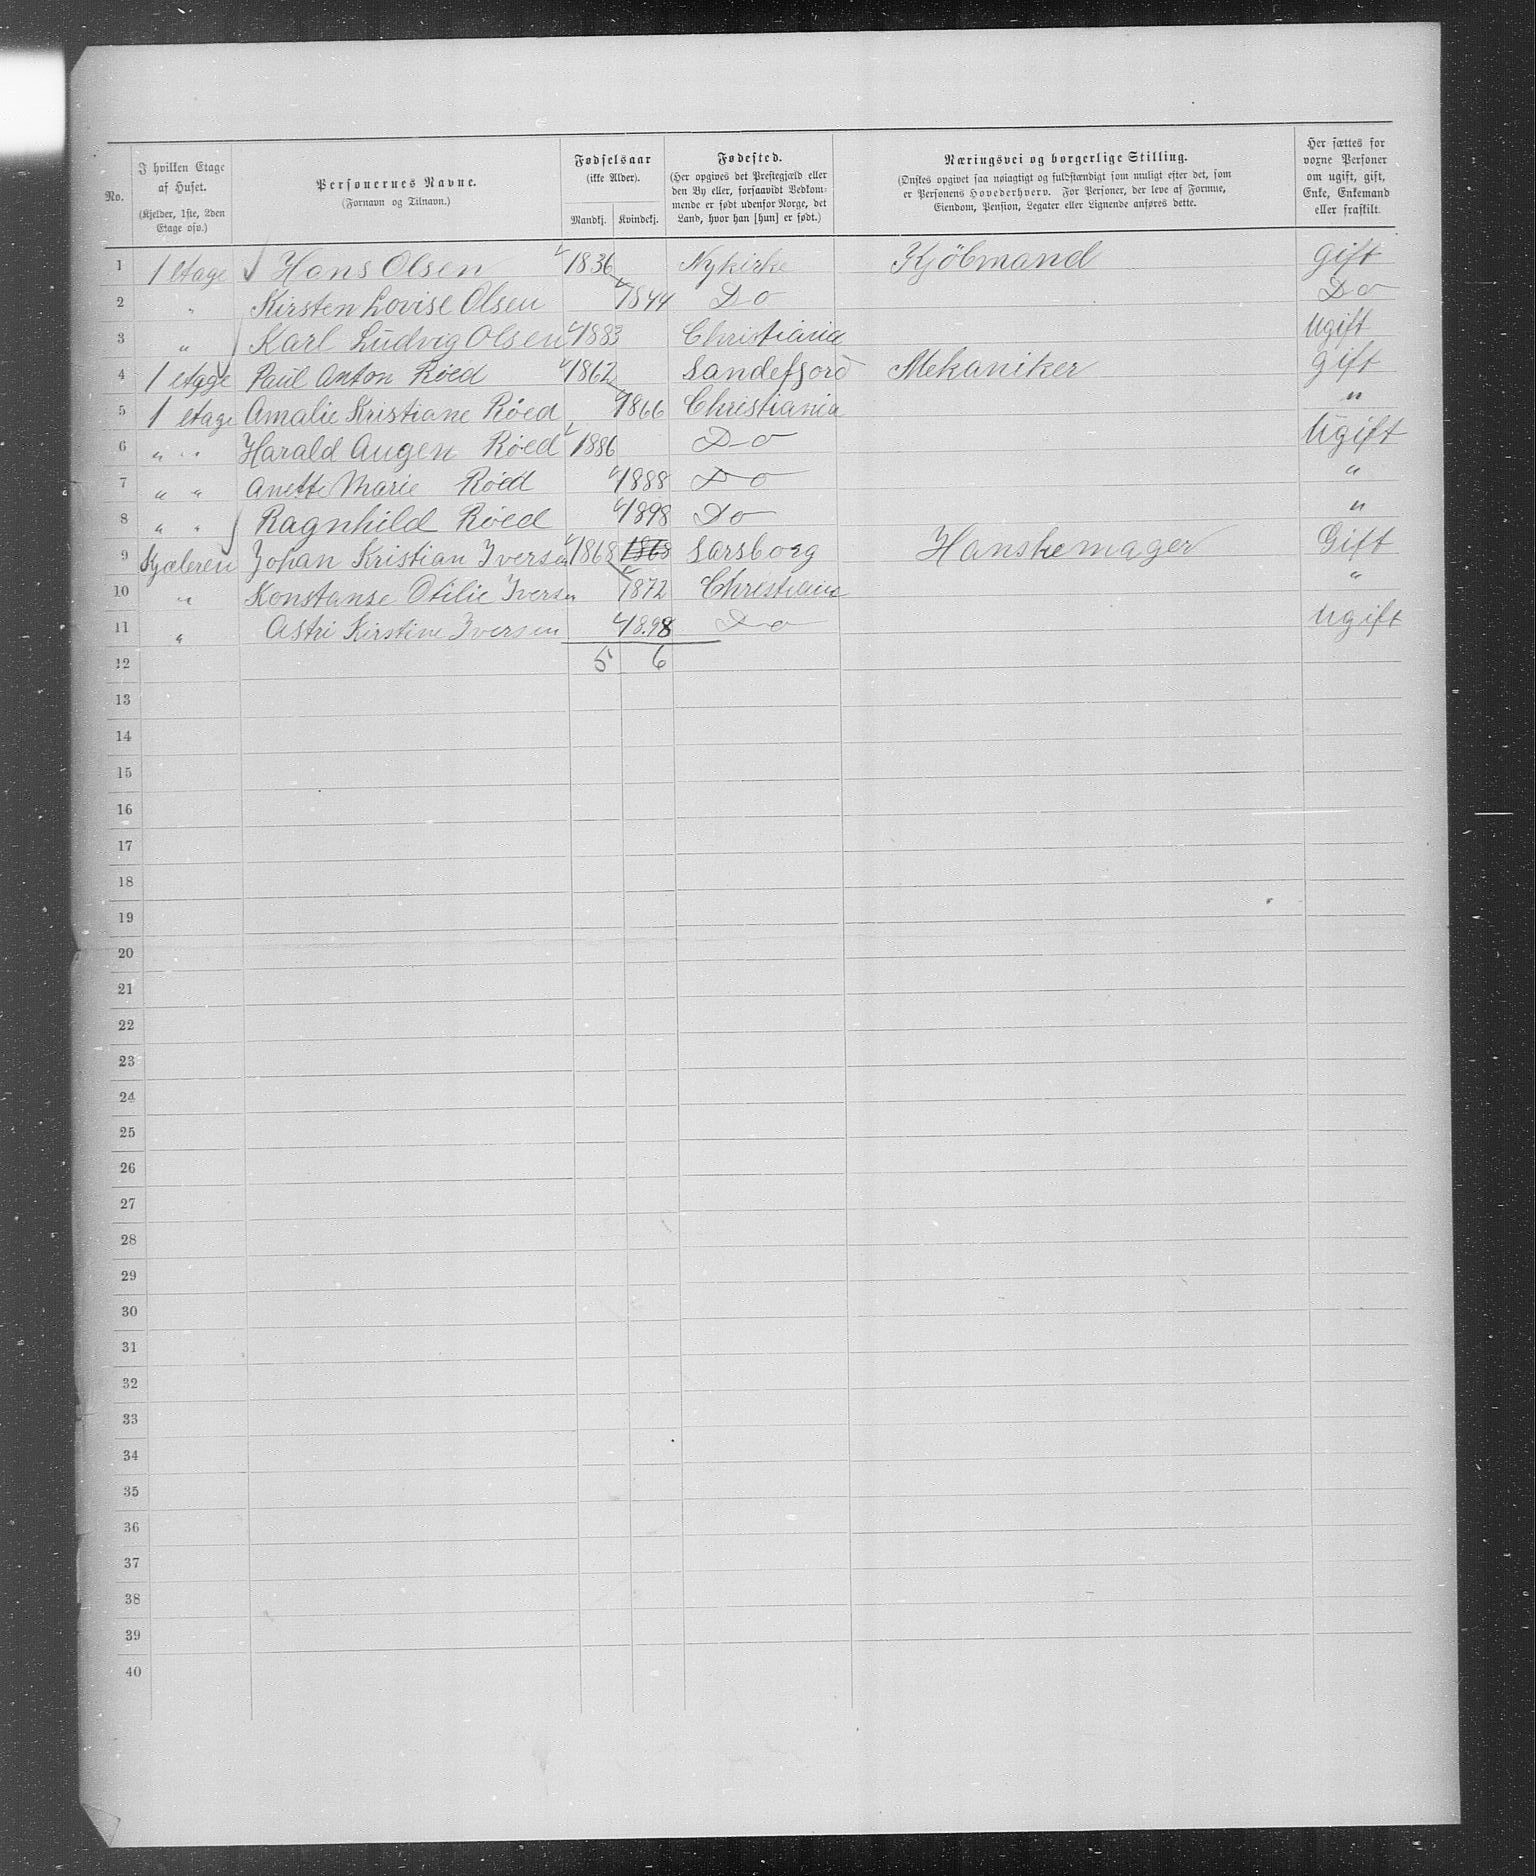 No.
I hvilken Etage af Huset.
(Kjelder, 1ste, 2den Etage osv.)
Personernes Navne.
(Fornavn og Tilnavn.)
Fødselsaar
(ikke Alder).
Mandkj. Kvindekj.
Fødested.
(Her opgives det Prestegjæld eller den By eller, forsaavidt Vedkommende er født udenfor Norge, det Land, hvor han [hun] er født.)
Næringsvei og borgerlige Stilling.
(Ønskes opgivet saa nøiagtigt og fuldstændigt som muligt efter det, som er Personens Hovederhverv. For Personer, der leve af Formue, Eiendom, Pension, Legater eller Lignende anføres dette.
Her sættes for voxne Personer om ugift, gift, Enke, Enkemand eller fraskilt.
1 1 etage Hans Olsen 1836 Nykirke Kjöbmand gift
2 " Kirsten Lovise Olsen 1844 Do Do
3 " Karl Ludvig Olsen 1883 Christiania Ugift
4 1 etage Paul Anton Röed 1862 Sandefjord Mekaniker gift
5 1 etage Amalie Kristiane Röed 1866 Christiania "
6 " " Harald Augen Röed 1886 Do Ugift
7 " " Anette Marie Röed 1888 Do "
8 " " Ragnhild Röed 1898 Do "
9 Kjæleren Johan Kristian Iversen 1868 1868 Sarsborg Hanskemager Gift
10 " Konstanse Otilie Iversen 1872 Christiania "
11 " Astri Kirstine Iversen 1898 Do Ugift
12 5 6
13
14
15
16
17
18
19
20
21
22
23
24
25
26
27
28
29
30
31
32
33
34
35
36
37
38
39
40